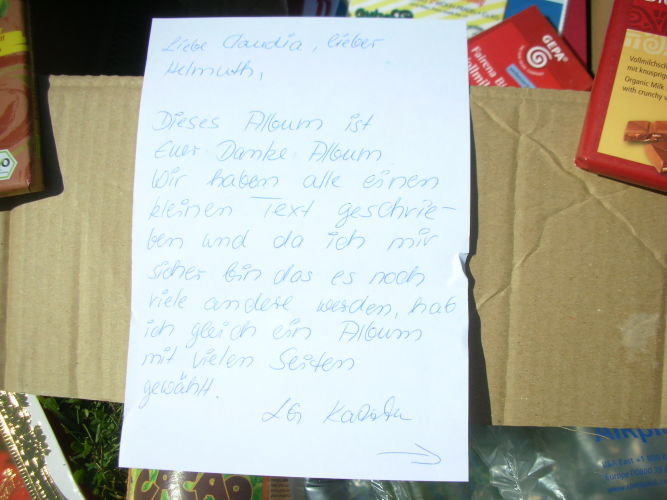 Liebe Claudia, lieber
Helmuth,
Dieses Album ist
Euer Danke Album
Wir haben alle einen
kleinen Text geschrie-
ben und da ich mir
sicher bin das es noch
viele andere werden, hab
ich gleich ein Album
mit vielen Seiten
gewählt.
LG
GEPA
Fairena
Vollmil
Vollmilchsch
mit knusprig
Organic Milk
with crunchy
CACAO